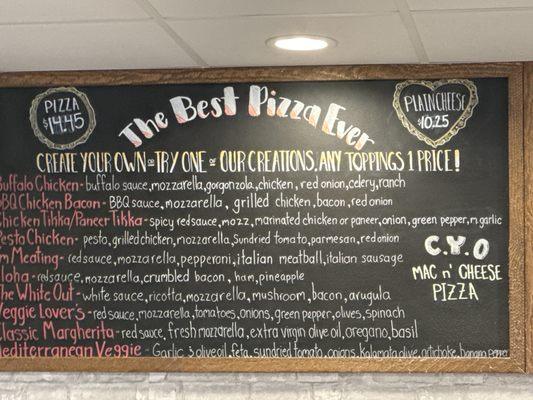 PIZZA
$14.45
The Best Pizza Ever
PLAIN CHEESE
$10.25
CREATE YOUR OWN OR TRY ONE OF OUR CREATIONS. ANY TOPPINGS 1 PRICE!
Buffalo Chicken- buffalo sauce, mozzarella, gorgonzola, chicken, red onion, celery, ranch
BBQ Chicken Bacon- BBQ sauce, mozzarella, grilled chicken, bacon, red onion
Chicken Tikka/Paneer Tikka- spicy red sauce, mozz, marinated chicken or paneer, onion, green pepper, n garlic
Pesto Chicken- pesto, grilled chicken, mozzarella, Sundried tomato, parmesan, red onion
m Meating- red sauce, mozzarella, pepperoni, italian meatball, italian sausage
loha- red sauce, mozzarella, crumbled bacon, ham, pineapple
The White Out- white sauce, ricotta, mozzarella, mushroom, bacon, arugula
Veggie Lovers- red sauce, mozzarella, tomatoes, onions, green pepper, olives, spinach
Classic Margherita- red sauce, fresh mozzarella, extra virgin olive oil, oregano, basil
Mediterranean Veggie- Garlic & olive oil, feta, sundried tomato, onions, kalamata olive, artichoke, banana pepper
C.Y.O
MAC n' CHEESE
PIZZA